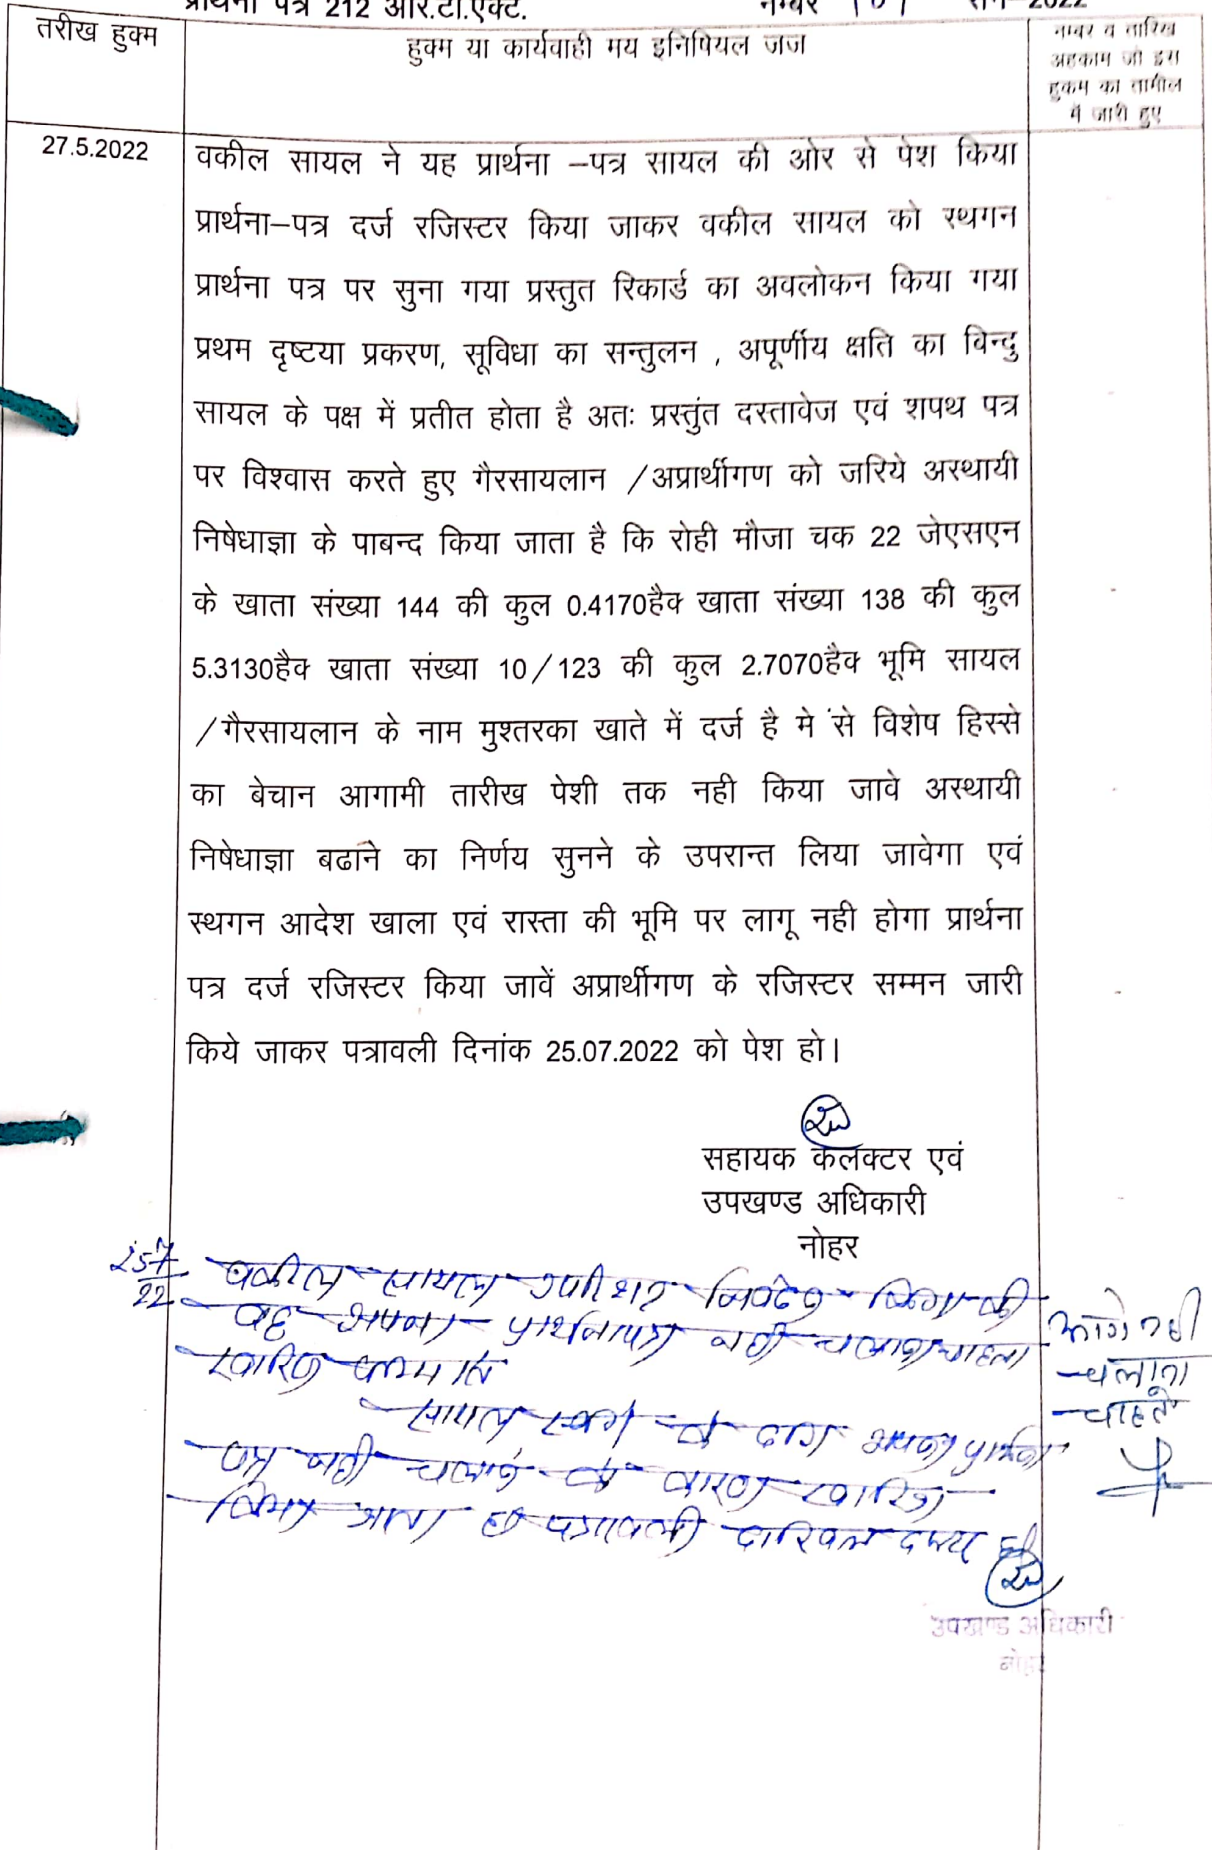 प्रार्थना पत्र 212 आर.टी.एक्ट. नम्बर सन-2022
तरीख हुक्म
हुक्म या कार्यवाही मय इनिषियल जज
नम्बर व तारिख
अहकाम जो इस
हुकम का तामील
में जारी हुए
27.5.2022
वकील सायल ने यह प्रार्थना –पत्र सायल की ओर से पेश किया
प्रार्थना–पत्र दर्ज रजिस्टर किया जाकर वकील सायल को स्थगन
प्रार्थना पत्र पर सुना गया प्रस्तुत रिकार्ड का अवलोकन किया गया
प्रथम दृष्टया प्रकरण, सूविधा का सन्तुलन , अपूर्णीय क्षति का बिन्दु
सायल के पक्ष में प्रतीत होता है अतः प्रस्तुंत दस्तावेज एवं शपथ पत्र
पर विश्वास करते हुए गैरसायलान /अप्रार्थीगण को जरिये अस्थायी
निषेधाज्ञा के पाबन्द किया जाता है कि रोही मौजा चक 22 जेएसएन
के खाता संख्या 144 की कुल 0.4170हैक खाता संख्या 138 की कुल
5.3130हैक खाता संख्या 10/123 की कुल 2.7070हैक भूमि सायल
/गैरसायलान के नाम मुश्तरका खाते में दर्ज है मे से विशेष हिस्से
का बेचान आगामी तारीख पेशी तक नही किया जावे अस्थायी
निषेधाज्ञा बढाने का निर्णय सुनने के उपरान्त लिया जावेगा एवं
स्थगन आदेश खाला एवं रास्ता की भूमि पर लागू नही होगा प्रार्थना
पत्र दर्ज रजिस्टर किया जावें अप्रार्थीगण के रजिस्टर सम्मन जारी
किये जाकर पत्रावली दिनांक 25.07.2022 को पेश हो।
सहायक कलक्टर एवं
उपखण्ड अधिकारी
नोहर
25-7
22
वकील सायल उपस्थित निवेदन किया की
वह अपना प्रार्थनापत्र नही चलाना चाहता
खारिज फरमावे
आगे नही
चलाना
चाहते
सायल स्वयं के द्वारा अपना प्रार्थना
पत्र नही चलाने के कारण खारिज
किया जाता है पत्रावली दाखिल दफ्तर हो
उपखण्ड अधिकारी
नोहर